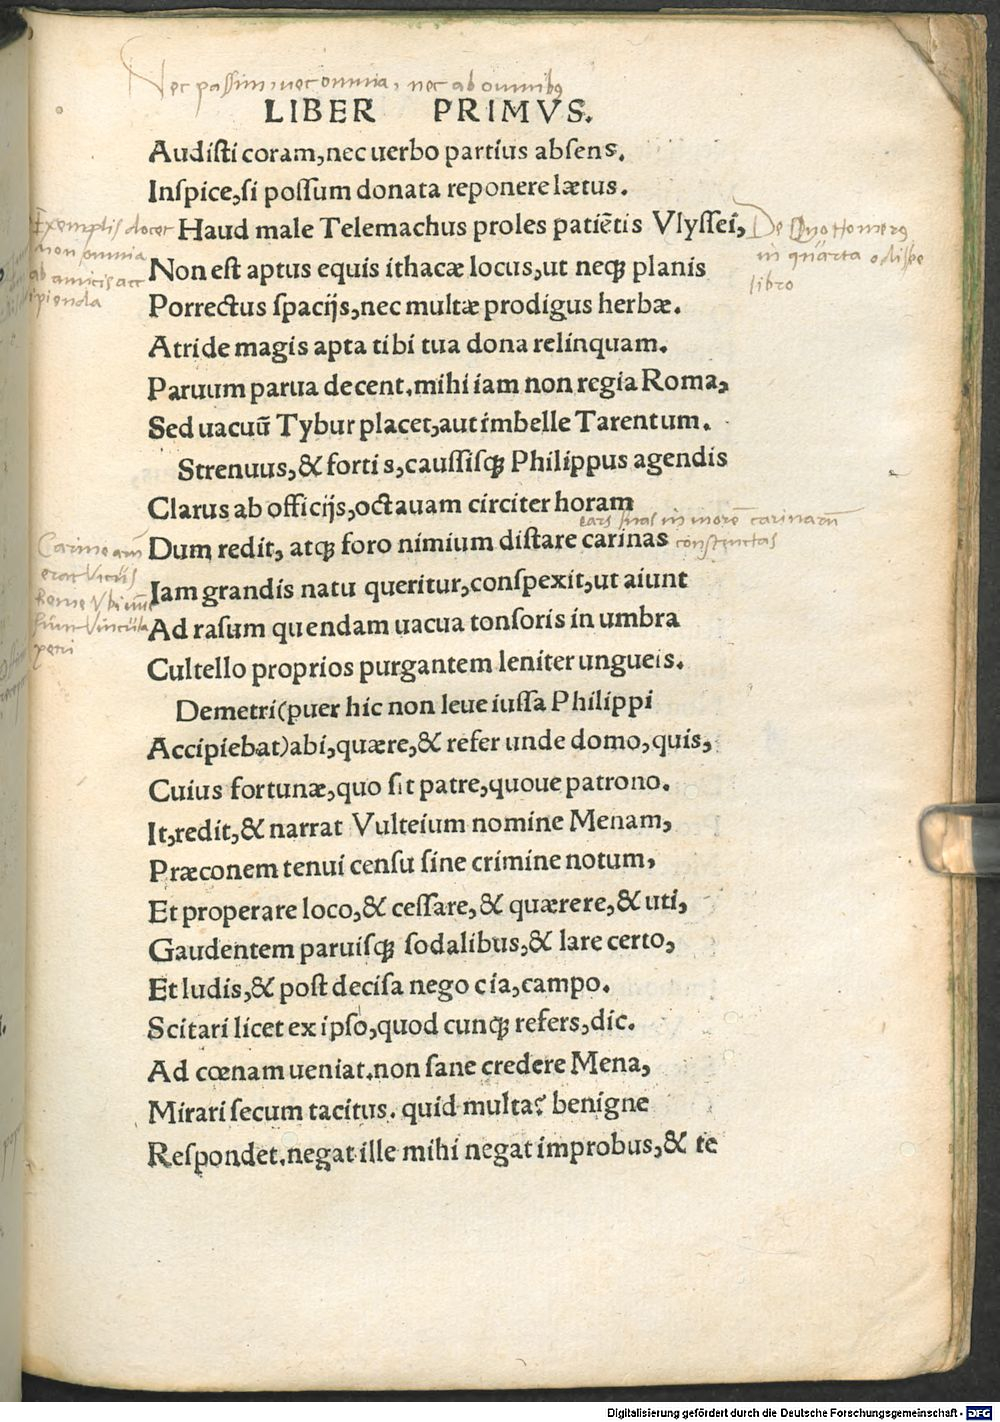 Nec passim, nec omnia, nec ab omnibꝰ
LIBER PRIMVS.
Audisti coram, nec uerbo partius absens.
Inspice, si possum donata reponere lætus.
Exemplis docet
non omnia
ab amicis acc
ipienda
Haud male Telemachus proles patiẽtis Vlyssei,
De Quo Homerꝰ
in quarta odisse
libro
Non est aptus equis ithacæ locus, ut neqꝫ planis
Porrectus spacijs, nec multæ prodigus herbæ.
Atride magis apta tibi tua dona relinquam.
Paruum parua decent. mihi iam non regia Roma,
Sed uacuũ Tybur placet, aut imbelle Tarentum.
Strenuus, & fortis, caussisqꝫ Philippus agendis
Clarus ab officijs, octauam circiter horam
in morẽ carinarũ
Dum redit, atqꝫ foro nimium distare carinas
constructas
Carine
erat Vicus
Rome Vbi
sunt Vincula
petri
Iam grandis natu queritur, conspexit, ut aiunt
Ad rasum quendam uacua tonsoris in umbra
Cultello proprios purgantem leniter ungueis.
Demetri (puer hic non leue iussa Philippi
Accipiebat) abi, quære, & refer unde domo, quis,
Cuius fortunæ, quo sit patre, quoue patrono.
It, redit, & narrat Vulteium nomine Menam,
Præconem tenui censu sine crimine notum,
Et properare loco, & cessare, & quærere, & uti,
Gaudentem paruisqꝫ sodalibus, & lare certo,
Et ludis, & post decisa negocia, campo.
Scitari licet ex ipso, quod cunqꝫ refers, dic.
Ad cœnam ueniat. non sane credere Mena,
Mirari secum tacitus. quid multa? benigne
Respondet. negat ille mihi negat improbus, & te
Digitalisierung gefördert durch die Deutsche Forschungsgemeinschaft - DFG